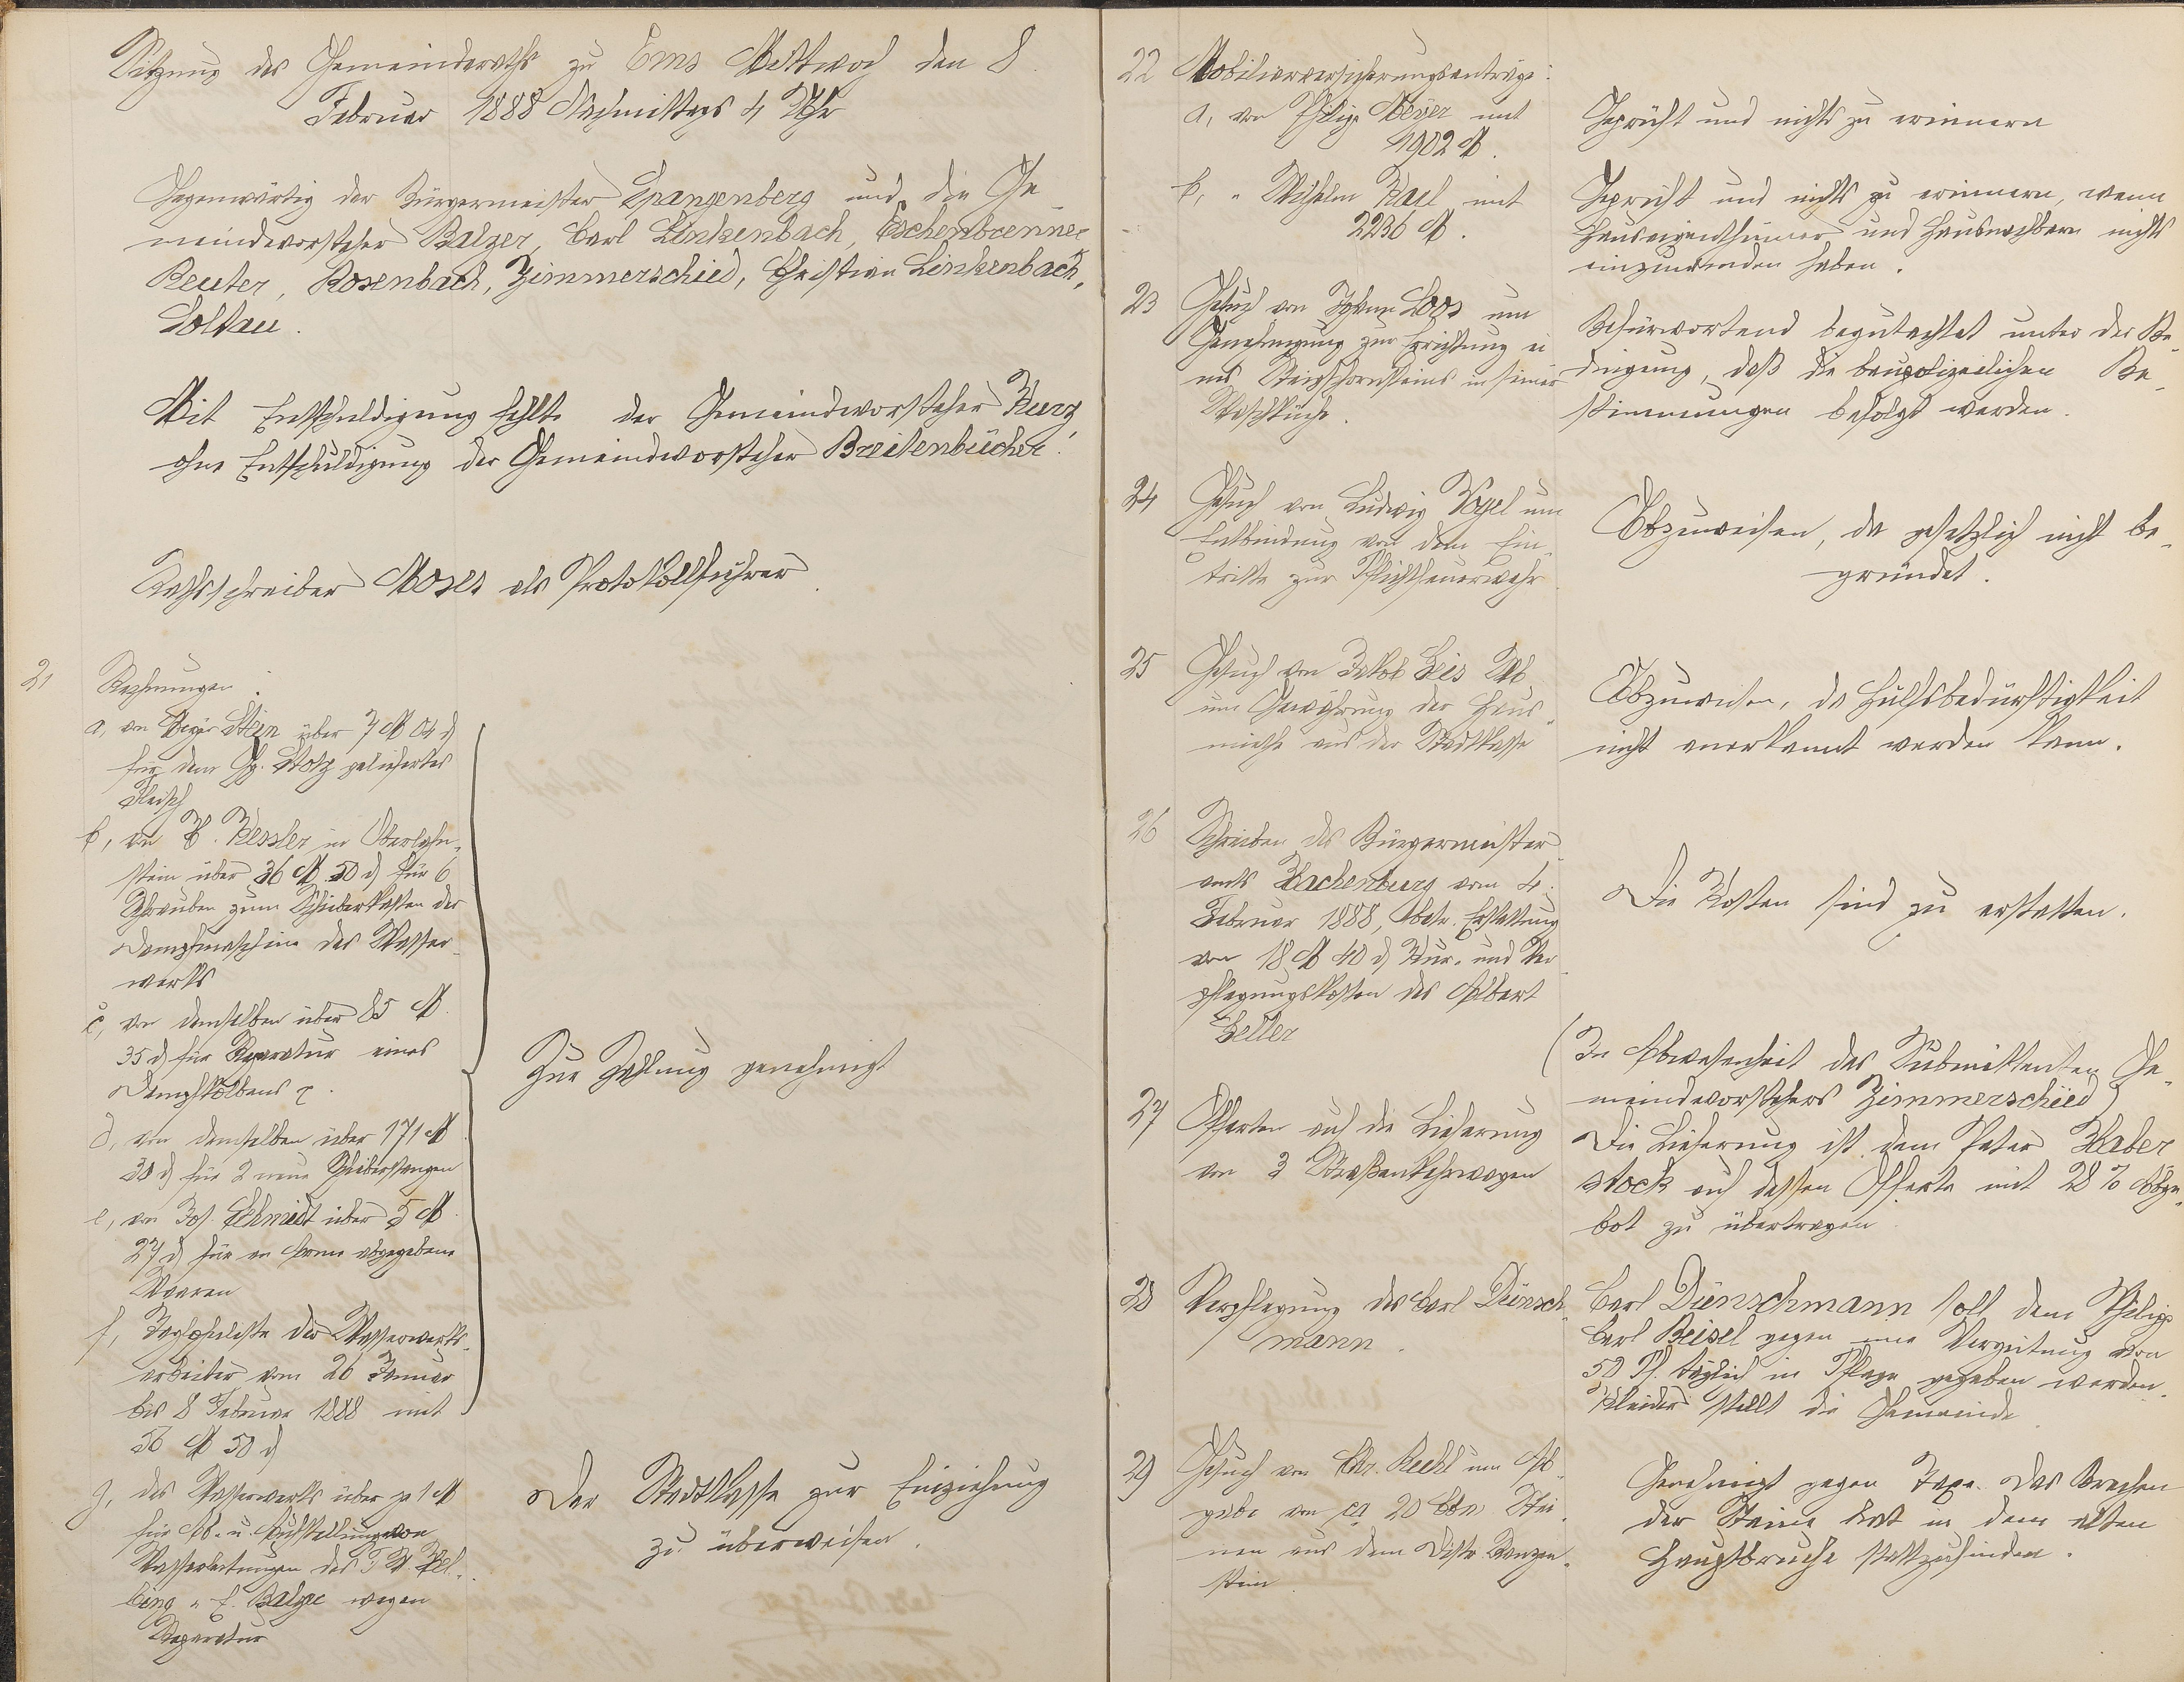 Sitzung des Gemeinderaths zu Ems Mittwoch den 8.
Februar 1888 Nachmittags 4 Uhr
Gegenwärtig der Bürgermeister Spangenberg und die Ge-
meindevorsteher Balzer, Carl Linkenbach, Eschenbrenner
Reuter, Rosenbach, Zimmerschied, Christian Linkenbach,
Soltau.
Mit Entschuldigung fehlte der Gemeindevorsteher Kurz,
ohne Entschuldigung der Gemeindevorsteher Breitenbücher.
Rathsschreiber Moses als Protokollführer.
21 Rechnungen:
a, von Stein über 7 M 04 d
für dem Gg. Stotz geliefertes
Fleisch
b, von C. Kessler in Oberlahn-
stein über 36 M 50 d für 6
Schrauben zum Schieberkasten der
Dampfmaschine des Wasser-
werks
c, von demselben über 85 M
35 d für Reparatur eines
Dampfkolbens
d, von demselben über 171 M
30 d für 2 neue Schieberstangen
e, von Jos. Schmidt über 5 M
27 d für an Arme abgegebene
Waaren
f, Taglohnliste der Wasserwerks-
arbeiter vom 26 Januar
bis 8 Februar 1888 mit
56 M 50 d
Zur Zahlung genehmigt
g, des Wasserwerks über je 1 M
für Ab- u. Aufstellung von
Wasserleitungen des F. W. Hel-
bing u. E. Balzer wegen
Reparatur
Der Stadtkasse zur Einziehung
zu überweisen.
22 Mobiliarversicherungsanträge:
a, von Philipp Meyer mit
1902 M.
Geprüft und nichts zu erinnern
b, " Wilhelm Karl mit
2236 M.
Geprüft und nichts zu erinnern, wenn
Hauseigenthümer und Hausnachbarn nichts
einzuwenden haben.
23 Gesuch von Johann Loos um
Genehmigung zur Errichtung ei-
nes Steigschornsteins in seiner
Waschküche.
Befürwortend begutachtet unter der Be-
dingung, daß die baupolizeilichen Be-
stimmungen befolgt werden.
24 Gesuch von Ludwig Vogel um
Entbindung von dem Ein-
tritte zur Pflichtfeuerwehr
Abzuweisen, da gesetzlich nicht be-
gründet.
25 Gesuch von Jakob Zeis
um Gewährung der Haus-
miethe aus der Stadtkasse
Abzuweisen, da Hülfsbedürftigkeit
nicht anerkannt werden kann.
26 Schreiben des Bürgermeister-
amts Hachenburg vom 4.
Februar 1888, betr. Erstattung
von 18 M 40 d Kur- und Ver-
pflegungskosten des Albert
Zeller
Die Kosten sind zu erstatten.
27 Offerten auf die Lieferung
von 3 Straßenkehrwagen
(In Abwesenheit des Submittenten Ge-
meindevorstehers Zimmerschied)
Die Lieferung ist dem Peter Haber
stock auf dessen Offerte mit 28 % Abge-
bot zu übertragen.
28 Verpflegung des Carl Dünsch-
mann.
Carl Dünschmann soll dem Philipp
Carl Beisel gegen eine Vergütung von
50 Pf. täglich in Pflege gegeben werden.
Kleider stellt die Gemeinde
29 Gesuch von Chr. Reehl um Ab-
gabe von ca 20 Cbm Stei-
nen aus dem Distr.
stein
Genehmigt gegen Taxe. Das Brechen
der Steine hat in dem alten
Hauptbruche stattzufinden.